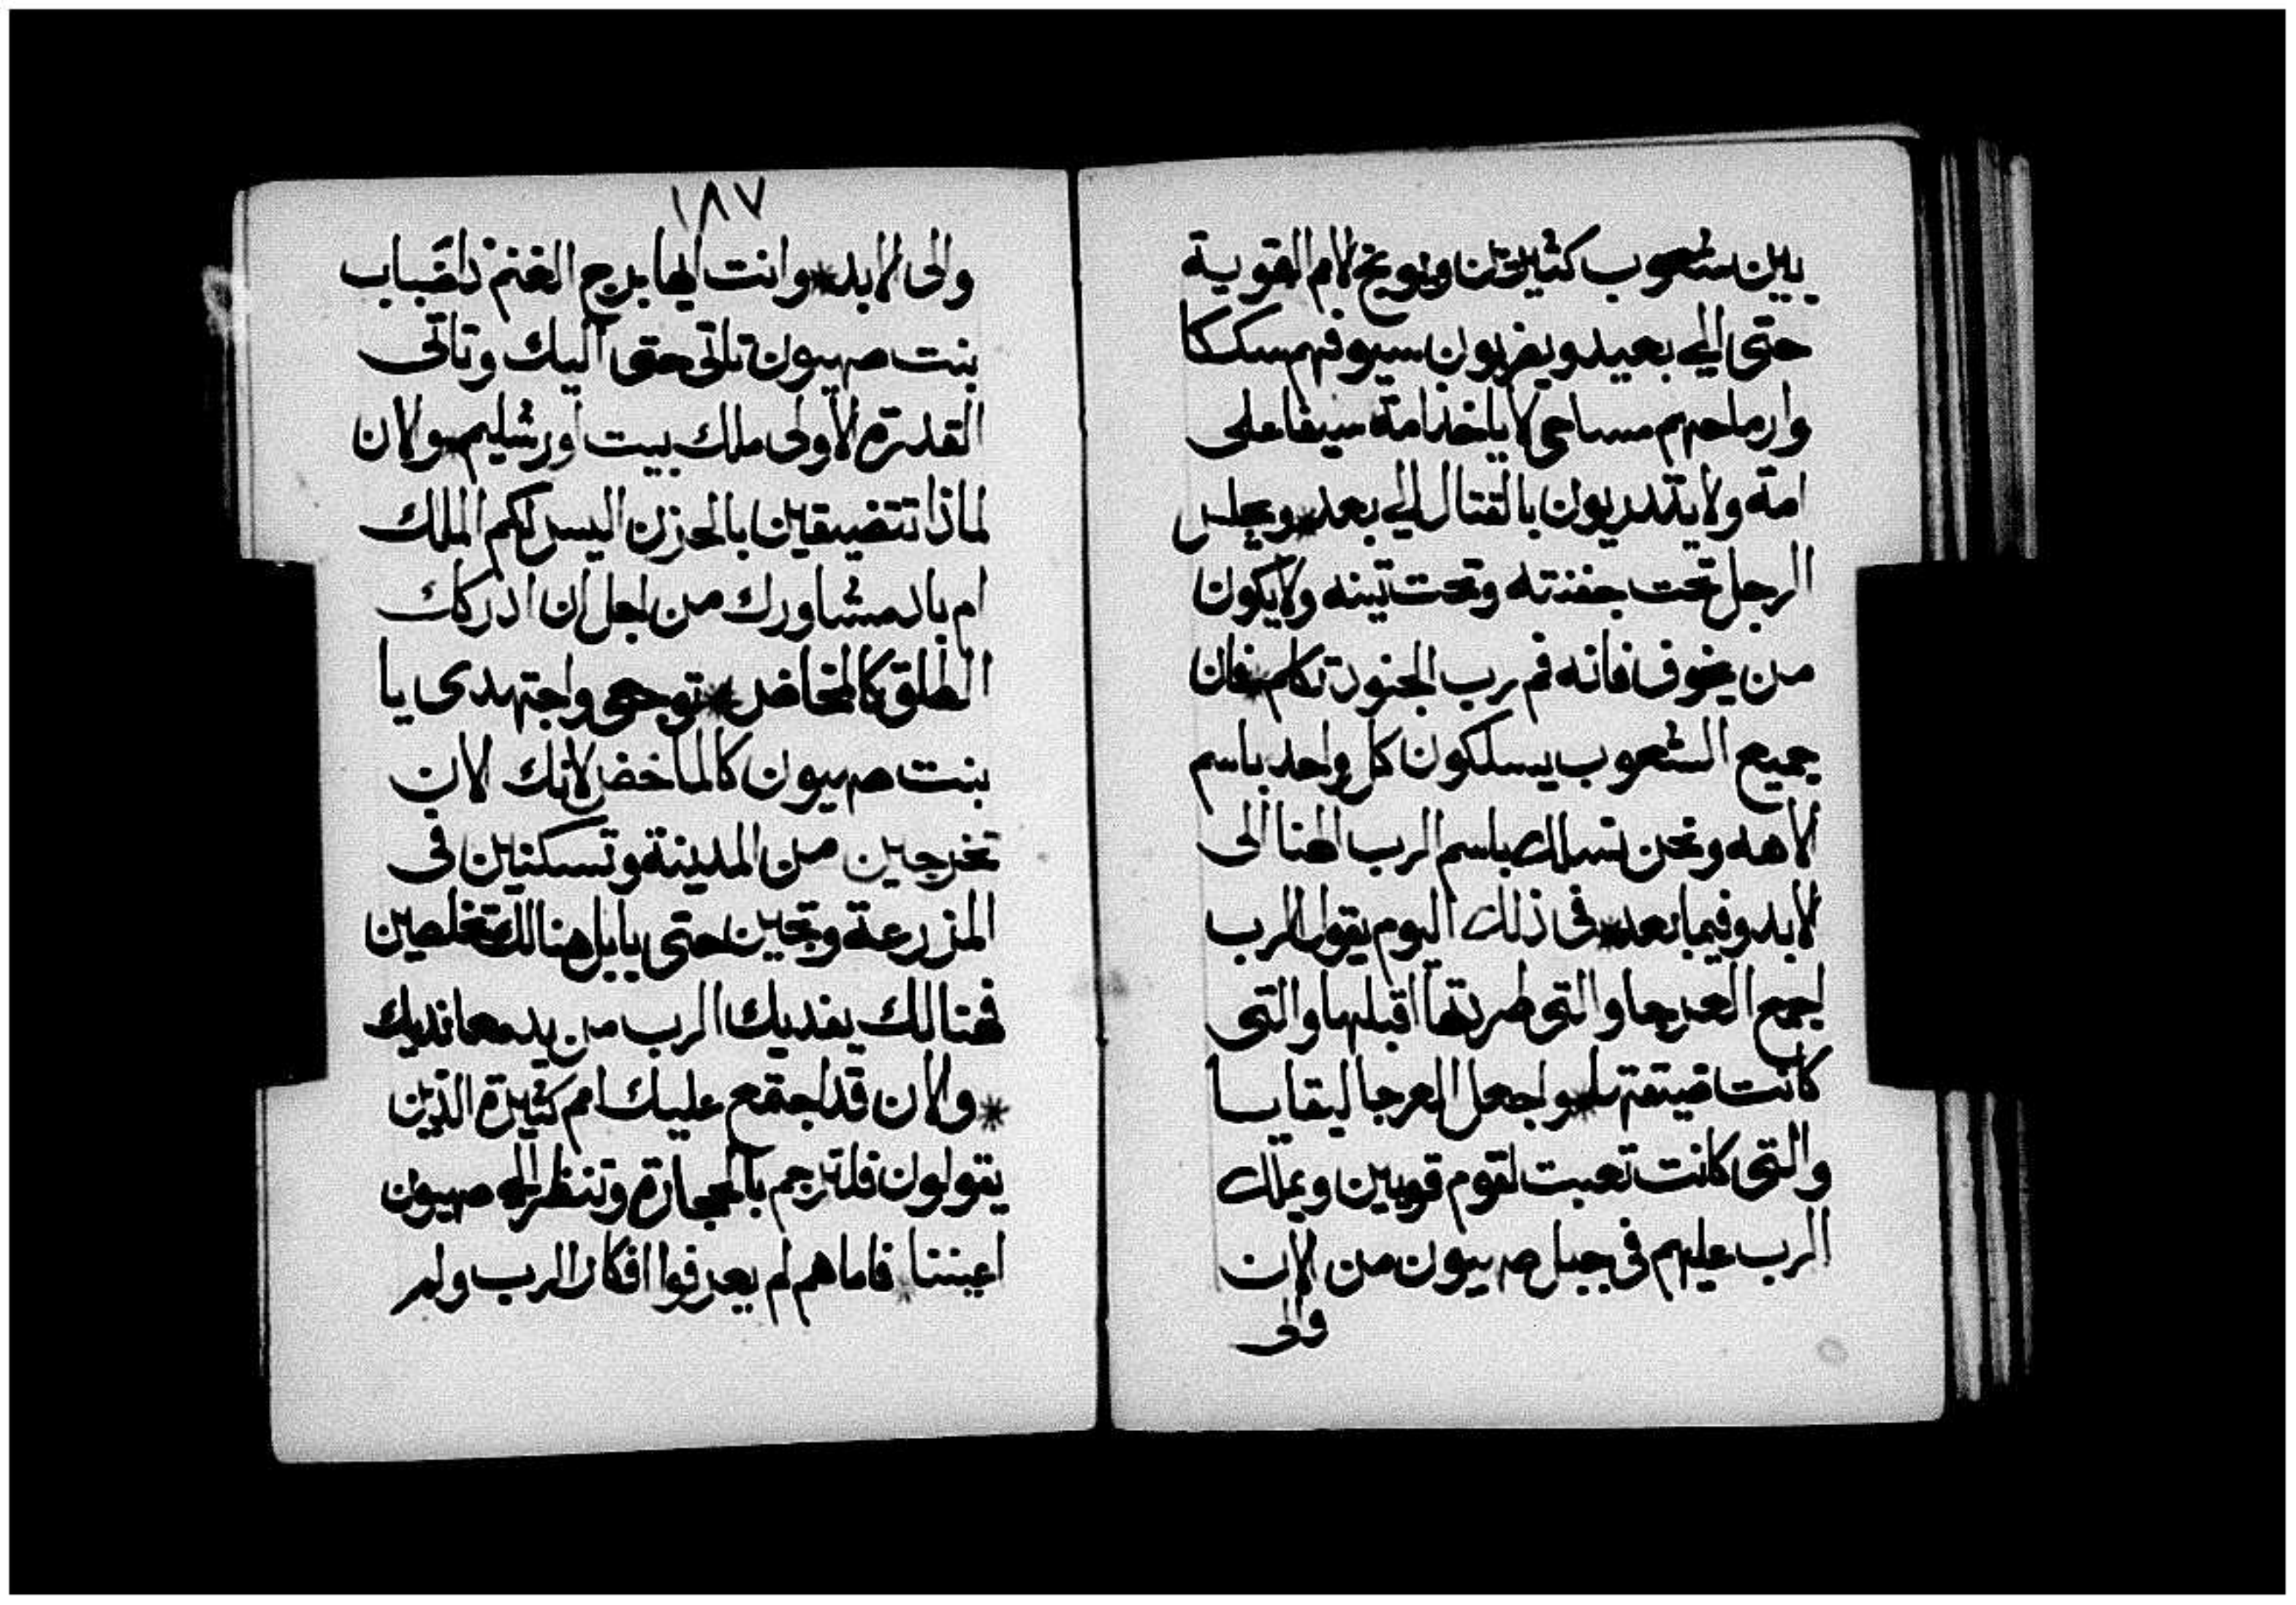 بين شعوب كثيرين ويوبخ لامم القوية
حتى الي بعيد ويضربون سيوفهم سككا
وارماحهم مساحي لا ياخذ امة سيفا على
امة ولا يتدربون بالقتال الي بعد * ويجلس
الرجل تحت جفنته وتحت تينه ولا يكون
من يخوف فانه فم رب الجنود تكلم * فان
جميع الشعوب يسلكون كل واحد باسم
لاهه ونحن نسلك باسم الرب الهنا الى
لابد وفيما بعد * في ذلك اليوم يقول الرب
لجمع العرجا والتى طردتها اقبلها والتى
كانت ضيقت * واجعل العرجا ليقايا
والتى كانت تعبت لقوم قويين ويملك
الرب عليهم في جبل صهيون من الان
والى
١٨٧
والى لابد * وانت ايها برج الغنم ذا ضباب
بنت صهيون تاتى حتى اليك وتاتى
القدرة الاولى ملك بيت اورشليم * ولان
لماذا تتضيقين بالحزن اليس لكم الملك
ام باد مشاورك من اجل ان ادركك
الطلق كالمخاض * توجعي واجتهدى يا
بنت صهيون كالماخض لانك لان
تخرجين من المدينة وتسكنين فى
المزرعة وتجين حتى بابل هنالك تخلصين
فهنالك يفديك الرب من يد معانديك
* والان قد اجتمع عليك امم كثيرة الذين
يقولون فلترجم بالحجارة وتنظر الى صهيون
اعيننا * فاما هم لم يعرفوا افكار الرب ولم